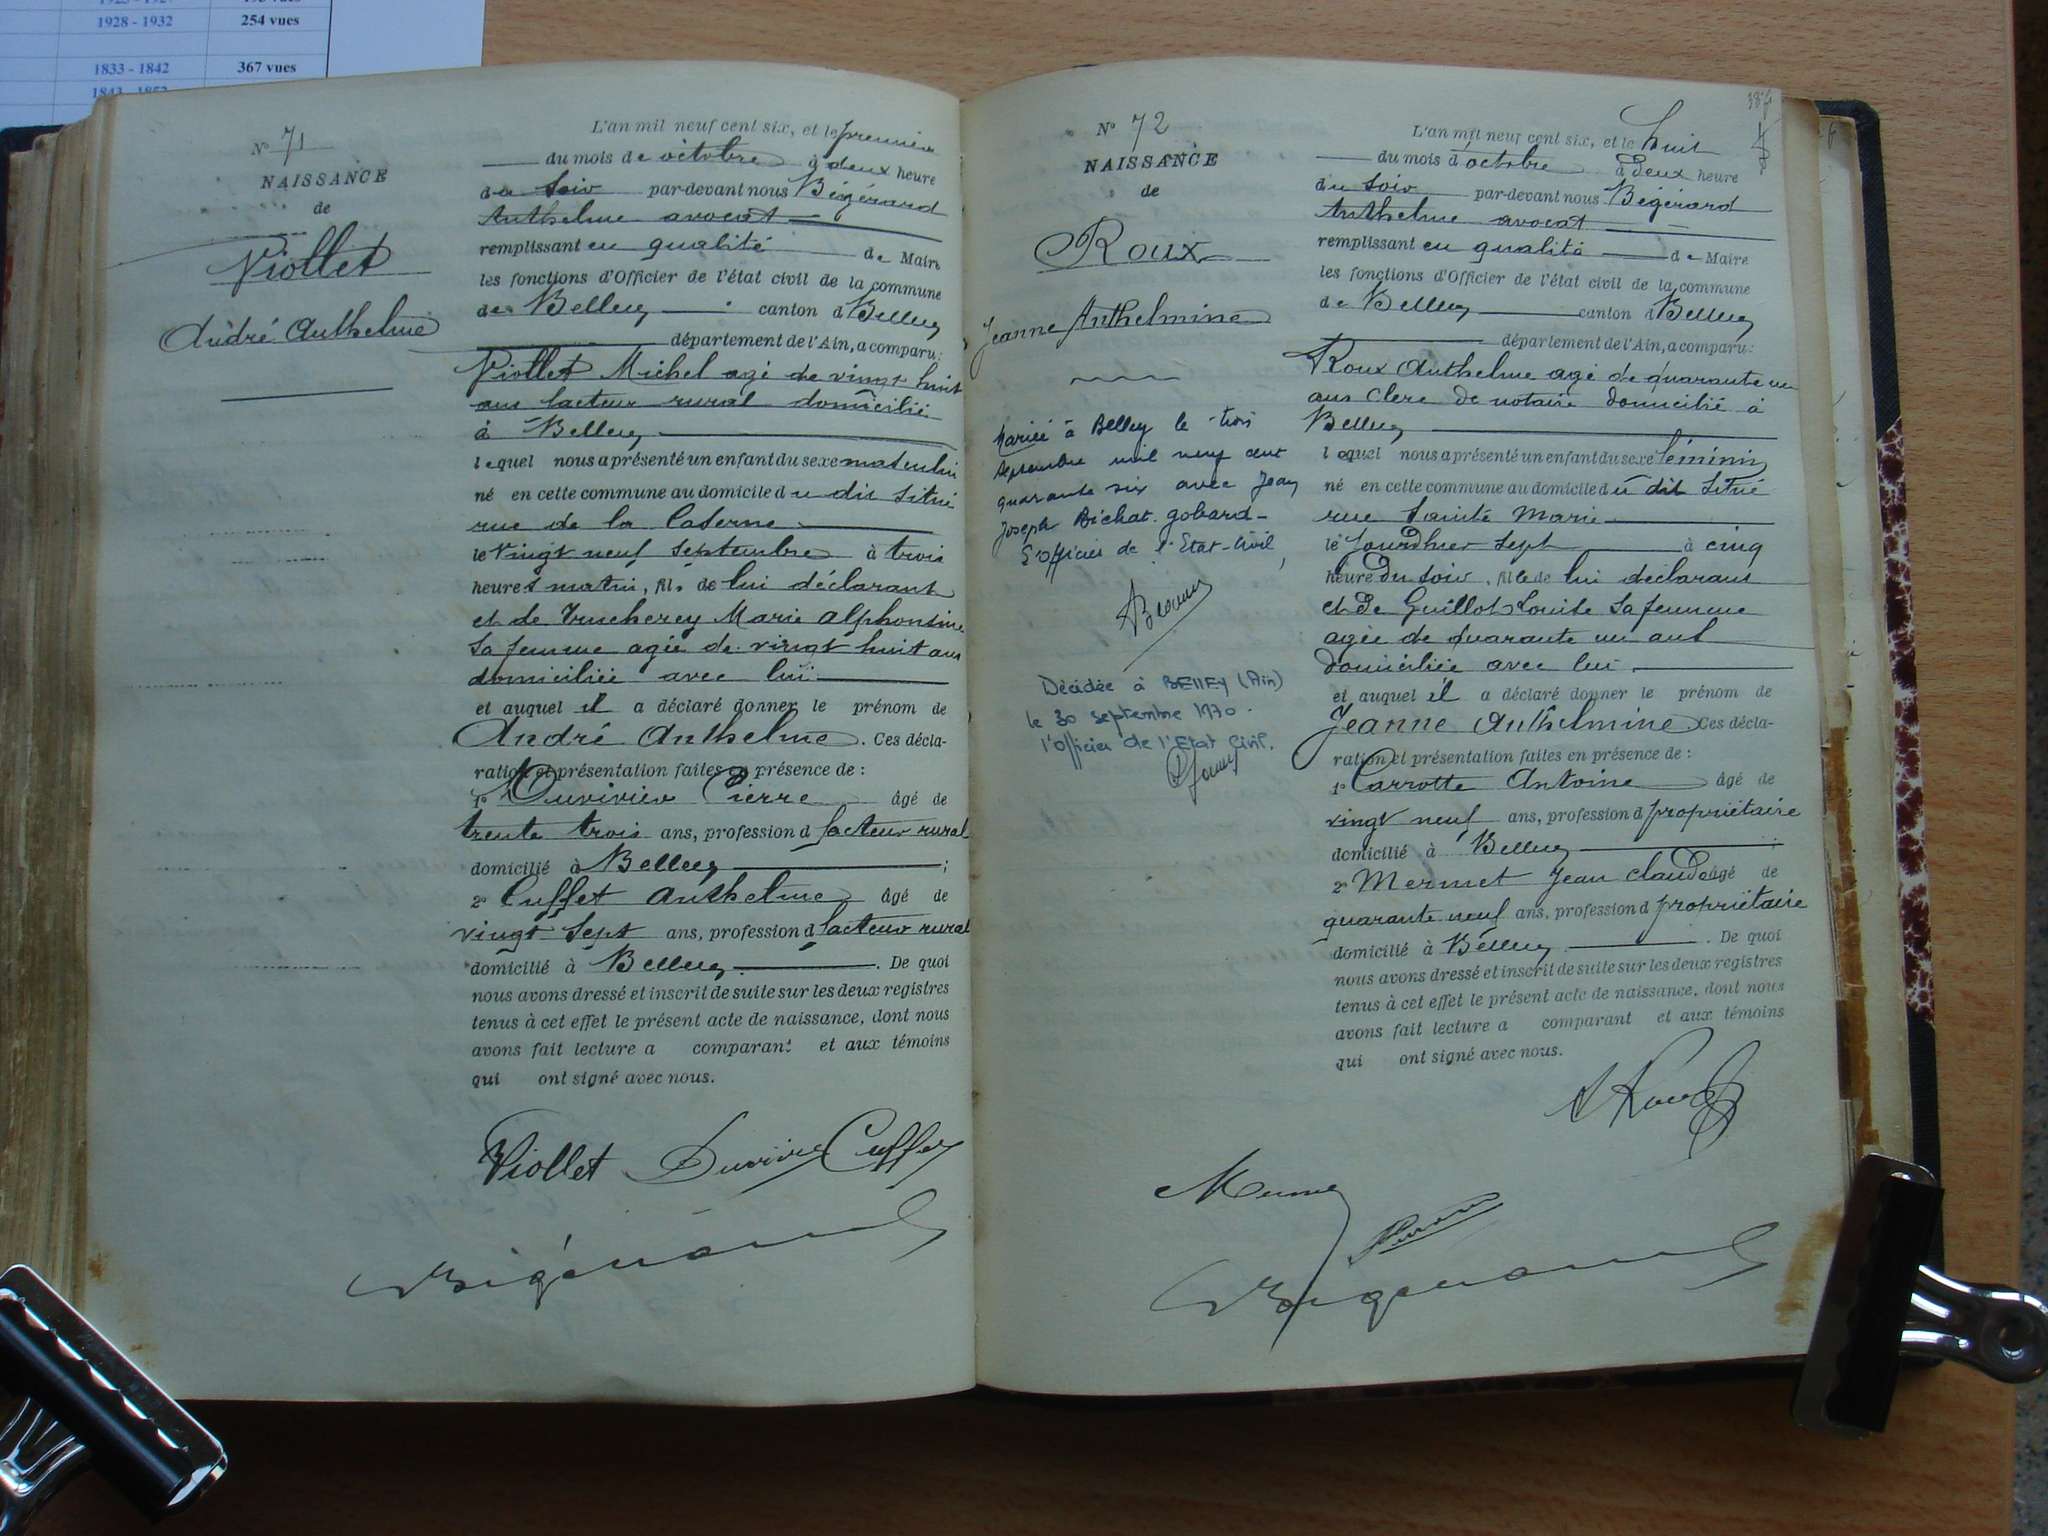 1928 - 1932 254 vues
1833 - 1842 367 vues
1843 - 1852
N° 71
NAISSANCE
de
Viollet
André Anthelme
L'an mil neuf cent six, et le premier
du mois de octobre à deux heure
du soir par-devant nous Bégérard
Anthelme avocat
remplissant en qualité de Maire
les fonctions d'Officier de l'état civil de la commune
de Belley canton d Belley
département de l'Ain, a comparu :
Viollet Michel agé de vingt huit
ans facteur rural domicilié
à Belley
lequel nous a présenté un enfant du sexe masculin
né en cette commune au domicile du dit situé
rue de la Caserne
le vingt neuf septembre à trois
heures matin, fils de lui déclarant
et de Trucherey Marie Alphonsine
sa femme agée de vingt huit ans
domiciliée avec lui
et auquel il a déclaré donner le prénom de
André Anthelme. Ces décla-
ration et présentation faites en présence de :
1° Duvivier Pierre âgé de
trente trois ans, profession d facteur rural
domicilié à Belley ;
2° Cuffet Anthelme âgé de
vingt sept ans, profession d facteur rural
domicilié à Belley. De quoi
nous avons dressé et inscrit de suite sur les deux registres
tenus à cet effet le présent acte de naissance, dont nous
avons fait lecture a comparant et aux témoins
qui ont signé avec nous.
Viollet Duvivier Cuffet
Bégérard
N° 72
NAISSANCE
de
Roux
Jeanne Anthelmine
Mariée à Belley le trois
septembre mil neuf cent
quarante six avec Jean
Joseph Bichat-Gobard-
L'Officier de l'Etat-Civil,
Décédée à BELLEY (Ain)
le 30 septembre 1970.
l'Officier de l'Etat Civil.
L'an mil neuf cent six, et le huit
du mois d'octobre à deux heure
du soir par-devant nous Bégérard
Anthelme avocat
remplissant en qualité de Maire
les fonctions d'Officier de l'état civil de la commune
de Belley canton d Belley
département de l'Ain, a comparu :
Roux Anthelme agé de quarante un
ans clerc de notaire domicilié à
Belley
lequel nous a présenté un enfant du sexe féminin
né en cette commune au domicile du dit situé
rue Sainte Marie
le jourdhier sept à cinq
heure du soir, fille de lui déclarant
et de Guillot Louise sa femme
agée de quarante un ans
domiciliée avec lui
et auquel il a déclaré donner le prénom de
Jeanne Anthelmine Ces décla-
ration et présentation faites en présence de :
1° Carrotte Antoine âgé de
vingt neuf ans, profession d propriétaire
domicilié à Belley ;
2° Mermet Jean Claude âgé de
quarante neuf ans, profession d propriétaire
domicilié à Belley. De quoi
nous avons dressé et inscrit de suite sur les deux registres
tenus à cet effet le présent acte de naissance, dont nous
avons fait lecture a comparant et aux témoins
qui ont signé avec nous.
A Roux
Mermet
Bégérard